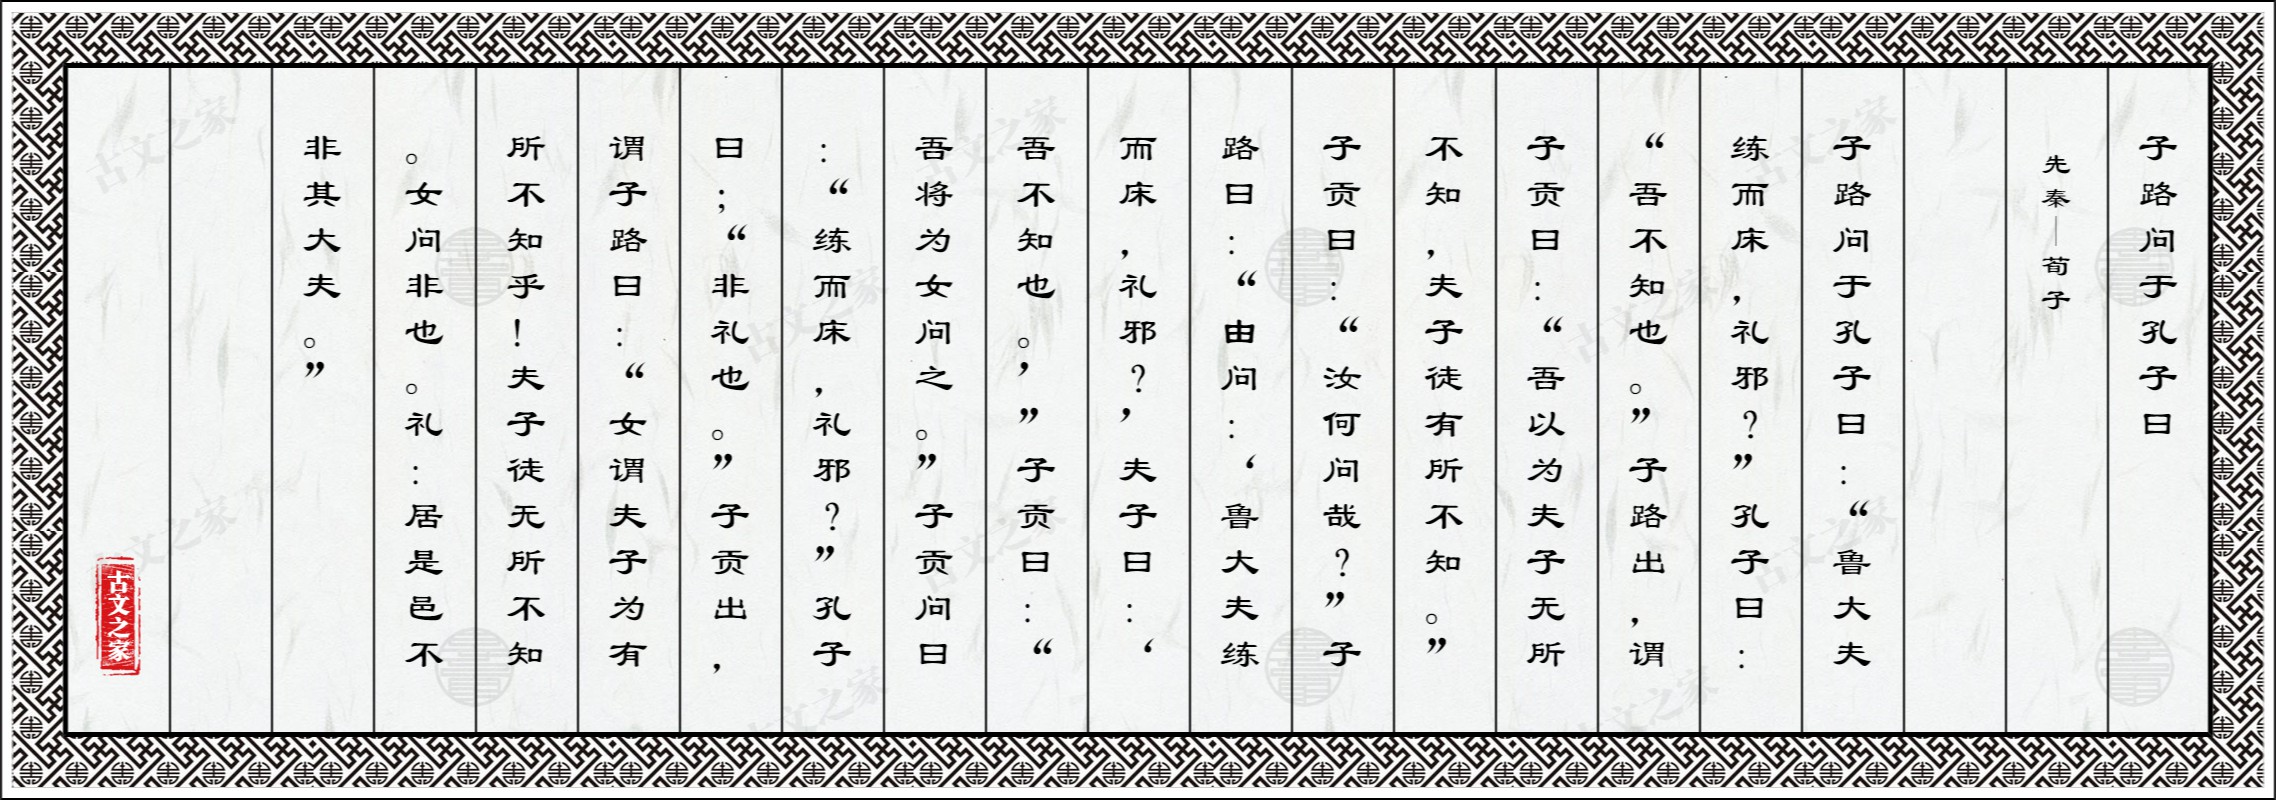 子路问于孔子曰
先秦—荀子
子路问于孔子曰：“鲁大夫
练而床，礼邪？”孔子曰：
“吾不知也。”子路出，谓
子贡曰：“吾以为夫子无所
不知，夫子徒有所不知。”
子贡曰：“汝何问哉？”子
路曰：“由问：‘鲁大夫练
而床，礼邪？’夫子曰：‘
吾不知也。’”子贡曰：“
吾将为女问之。”子贡问曰
：“练而床，礼邪？”孔子
曰；“非礼也。”子贡出，
谓子路曰：“女谓夫子为有
所不知乎！夫子徒无所不知
。女问非也。礼：居是邑不
非其大夫。”
古文之家